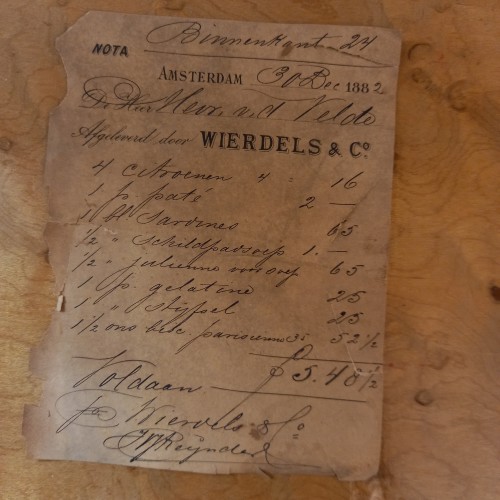 Binnenkant 24
NOTA
AMSTERDAM 30 Dec 1882
De Heer Mevr. v. d. Velde
Afgeleverd door WIERDELS & Co.
4 citroenen 4 " 16
1 p. paté 2 —
1 bl. Sardines 65
1/2 " Schildpadsoep 1. —
1/2 " julienne 65
1 p. gelatine 25
1 " stijfsel 25
1 1/2 ons parisienne 35 52 1/2
f 5.48 1/2
Voldaan
po Wierdels & Co